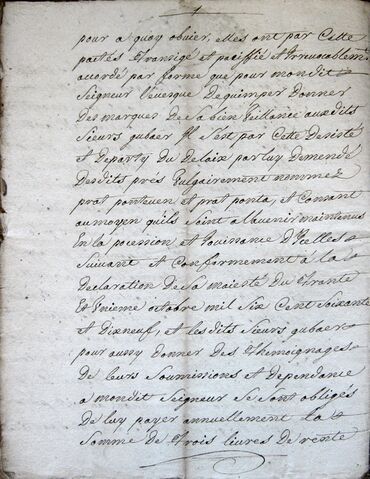 pour a quoy obvier, elles ont par Cette
partes transigé et paciffié et Irrevocablemt
accordé par forme que pour mondit
Seigneur l'evesque De quimper Donner
Des marques de sa bien veillance auxdits
sieurs gubaer Il s'est par Cette Desisté
et Departy Du Delaix par luy Demendé
Desdits prés Vulgairement nommes
prat ponteven et prat ponta, et Consant
au moyen quils soint a l'avenir maintenus
En la pocession et Jouissance d'Icelles
suivant et conformement à la
Declaration De sa majesté Du trante
et Unieme octobre mil six Cent soixante
et Dixneuf, et lesdits sieurs gubaer
pour aussy Donner Des Themoignages
De leurs soumissions et Dependance
a mondit seigneur se sont obligés
De luy payer annuellement la
somme De trois livres De rente